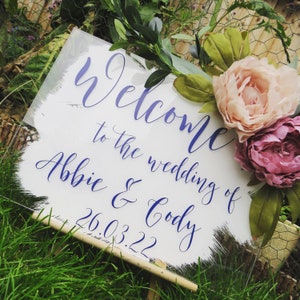 Welcome
to the wedding of
Abbie & Cody
26.03.22